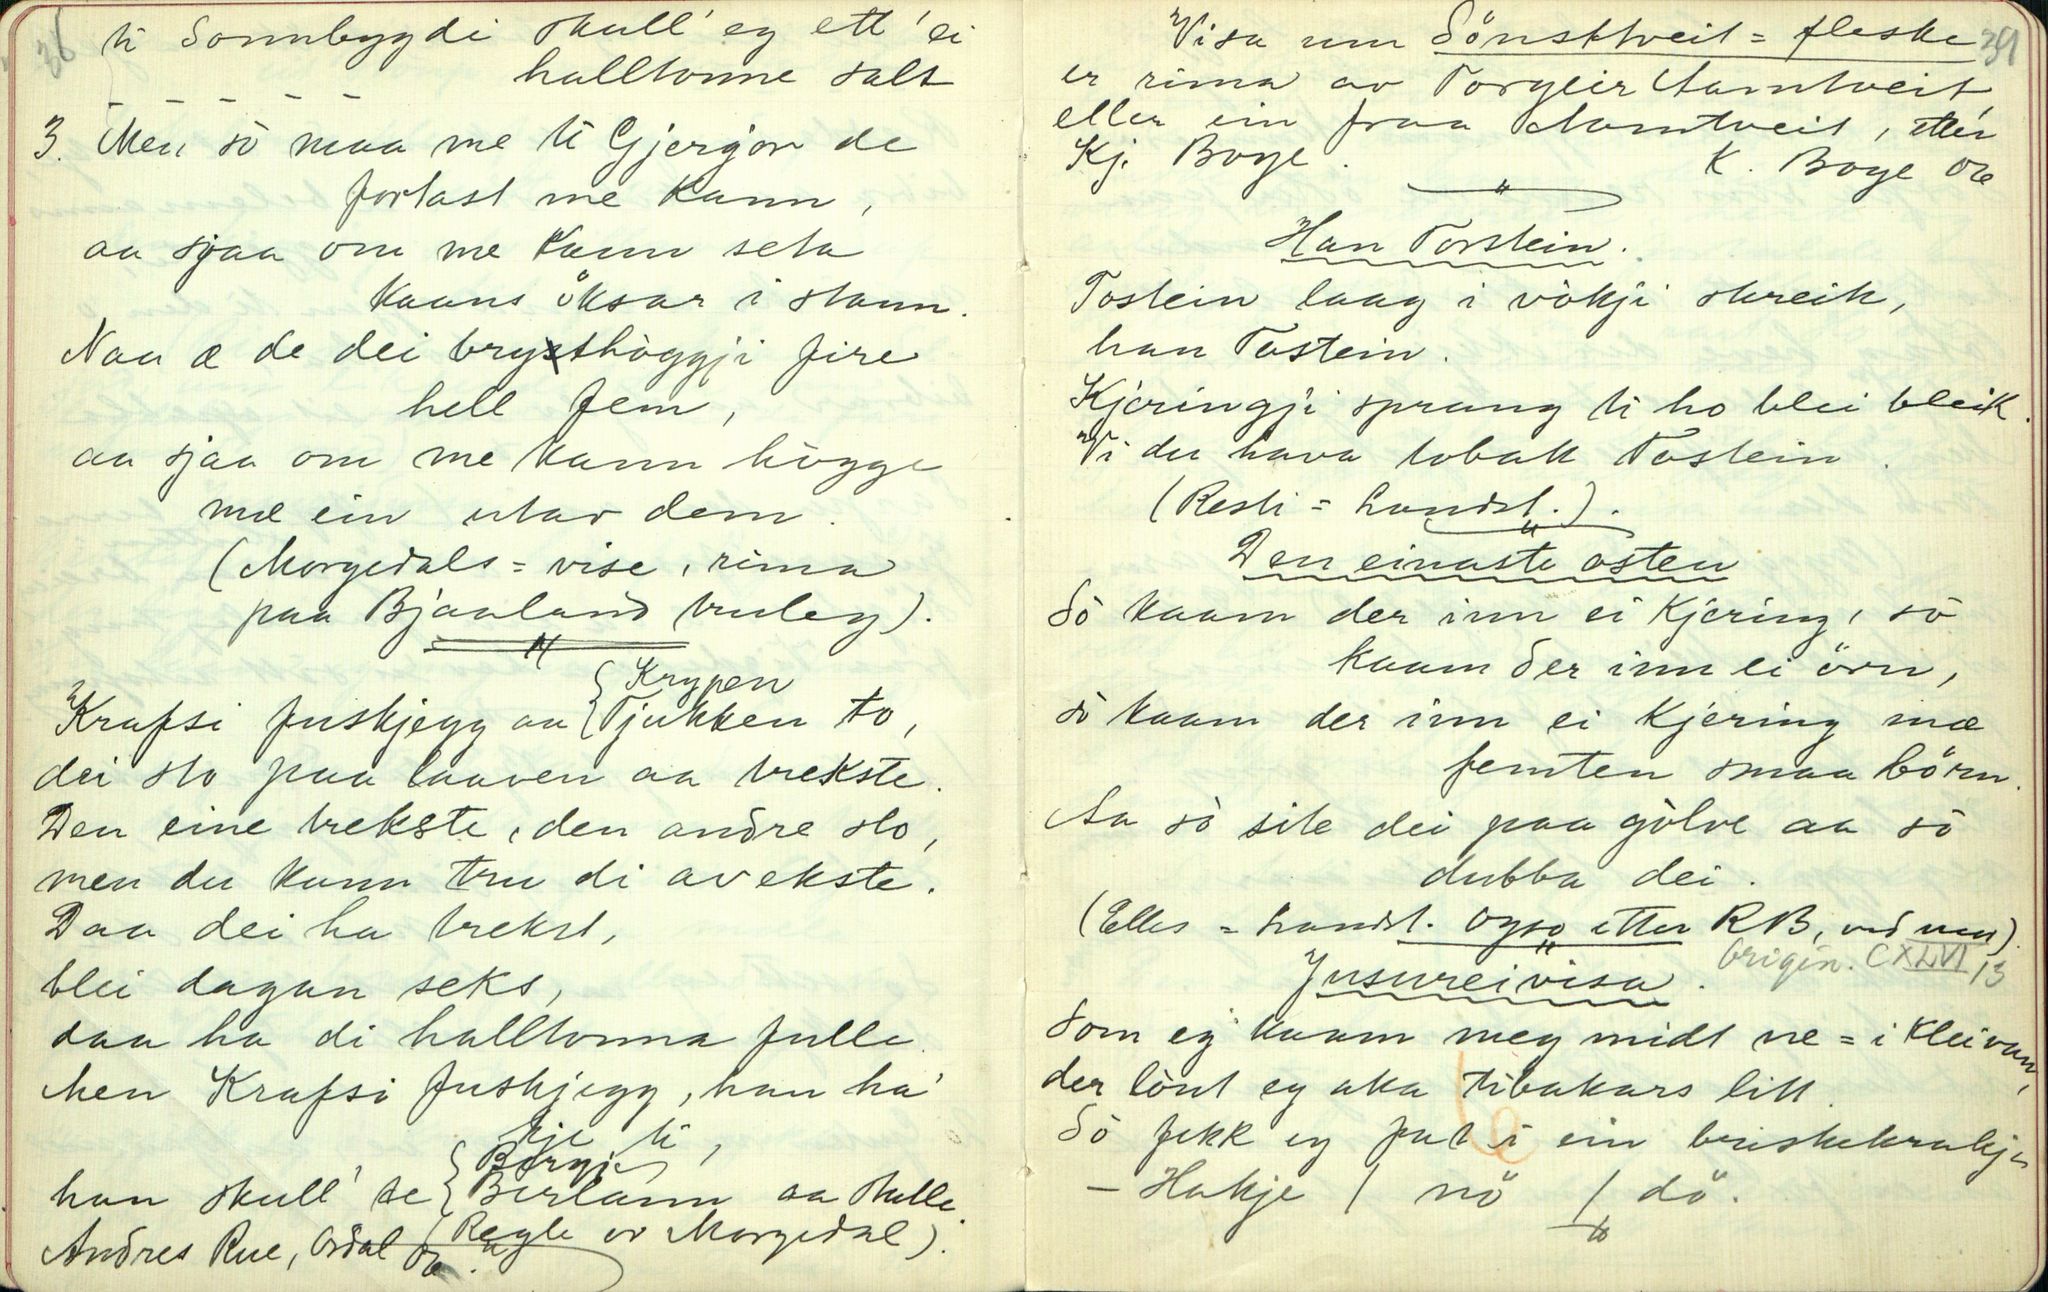 36
ti Sonnbygdi skull' eg ett' ei
halltonne salt
– – – – –
3. Men so maa me ti Gjergjov de
fortast me kann,
aa sjaa om me kann seta
kaans öksar i stann.
Naa æ de dei brysthöggji fire
hell fem,
aa sjaa om me kann högge
mæ ein utav dem.
(Morgedals-vise, rima
paa Bjaaland truleg).
Krypen
Krafsi fuskjegg aa Tjukken to,
dei sto paa laaven aa trekste.
Den eine trekste, den andre slo,
men du kann tru di avekste.
Daa dei ha trekst,
blei dagan seks,
daa ha di halltonna fulle.
Men Krafsi fuskjegg, han ha'
kje ti,
Borgje
han skull' te Berlann aa skulle.
(Regle or Morgedal).
Andres Rue, Ordal OE.
39
Visa um Sönsttveit-fleske
er rima av Torgeir Aamtveit,
eller ein fraa Aamtveit, etter
Kj. Boge. K. Boge OE
Han Torstein.
Tostein laag i vökji skreik,
han Tostein.
Kjeringji sprang ti ho blei bleik.
Vi du hava tobak Tostein.
(Resti = Landst.).
Den einaste osten
Sò kaam der inn ei kjering, sò
kaam der inn ei örn,
sò kaam der inn ei kjering mæ
femten smaa börn.
Aa sò site dei paa gòlve aa sò
dubba dei.
(Elles = Landst. ogso etter RB, ved meg).
Origin. CXLVI/13
Jusureivisa.
Som eg kaam meg midt ne-i kleivan,
der lònt eg aka tibakars litt.
Sò fekk eg fat i ein briskekrakje
– Hakje / nö / dö.